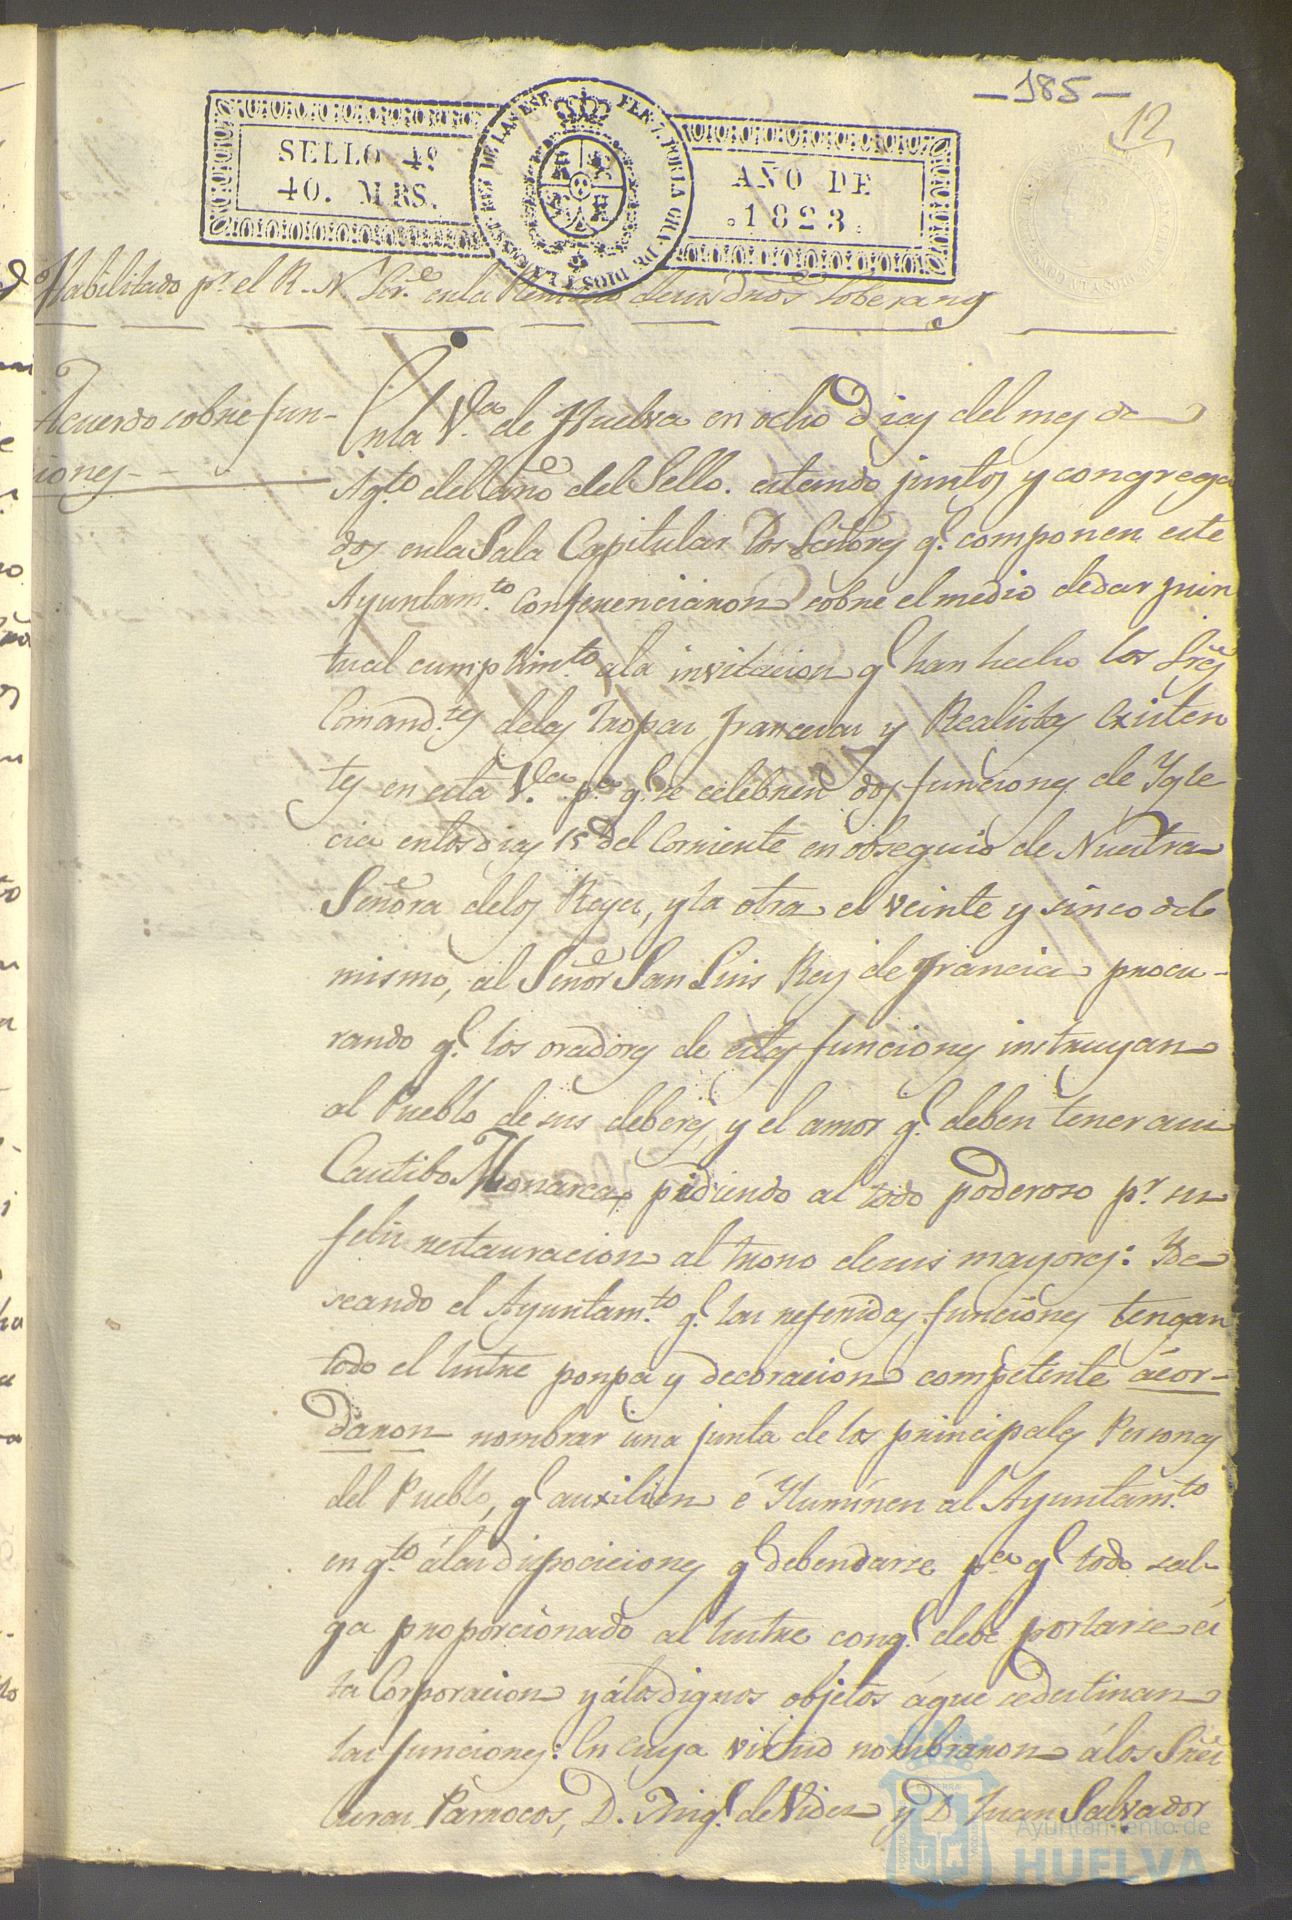 —185—
12
SELLO 4º
40. MRS.
AÑO DE
1823.
Habilitado pr. el R. N. Sre. en la de sus dros. Soberanos
Acuerdo sobre fun-
ciones
En la Va. de Huelva en ocho dias del mes de
Agto. del año del Sello. estando juntos y congrega
dos en la Sala Capitular los Señores q. componen este
Ayuntamto. conferenciaron sobre el medio de dar pun
tual cumplimto. a la invitacion q. han hecho los Sres
Comandtes de las tropas francesas y Realistas existen
tes en esta Va. pa. q. se celebren dos funciones de Ygle
cia en los dias 15 del Corriente en obsequio de Nuestra
Señora de los Reyes, y la otra el veinte y sinco del
mismo, al Señor San Luis Rey de Francia procu-
rando q. los oradores de estas funciones instruyan
al Pueblo de sus deberes, y el amor q. deben tener a su
Cautibo Monarca, pidiendo al todo poderoso pr. su
feliz restauracion al trono de sus mayores: Y de
seando el Ayuntamto. q. las referidas funciones tengan
todo el lustre ponpa y decoracion competente acor-
daron nombrar una junta de los principales Personas
del Pueblo, q. auxilien é Yluminen al Ayuntamto.
en qto. á las disposiciones q. deben darse pa. q. todo sal-
ga proporcionado al lustre con q. debe portarse es
ta Corporacion y á los dignos objetos á que se destinan
las funciones: En cuya virtud nombraron á los Sres
curas Parrocos, D. Migl. de Vides y D. Juan Salvador
Ayuntamiento de
HUELVA